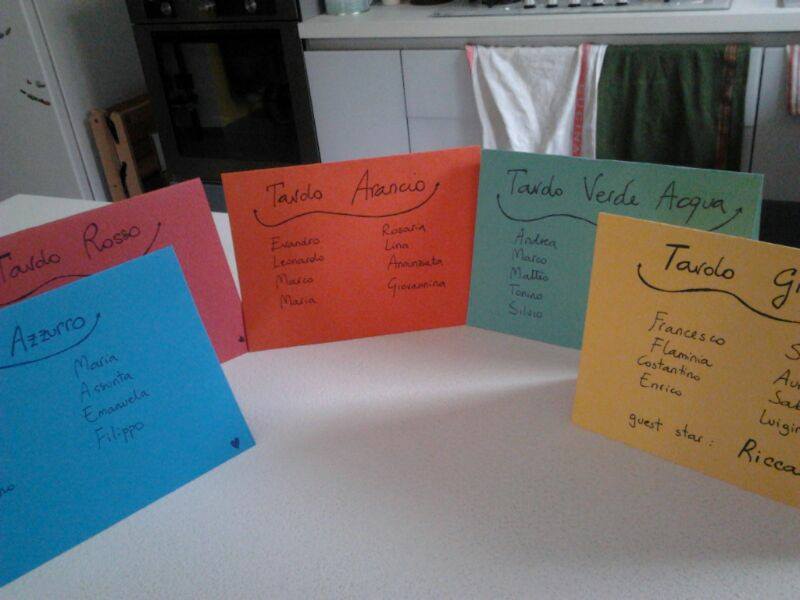 Tavolo Rosso
Azzurro
Maria
Assunta
Emanuela
Filippo
Tavolo Arancio
Evandro
Leonardo
Marco
Maria
Rosaria
Lina
Annunziata
Giovannina
Tavolo Verde Acqua
Andrea
Marco
Matteo
Tonino
Silvio
Tavolo
Francesco
Flaminia
Costantino
Enrico
guest star: